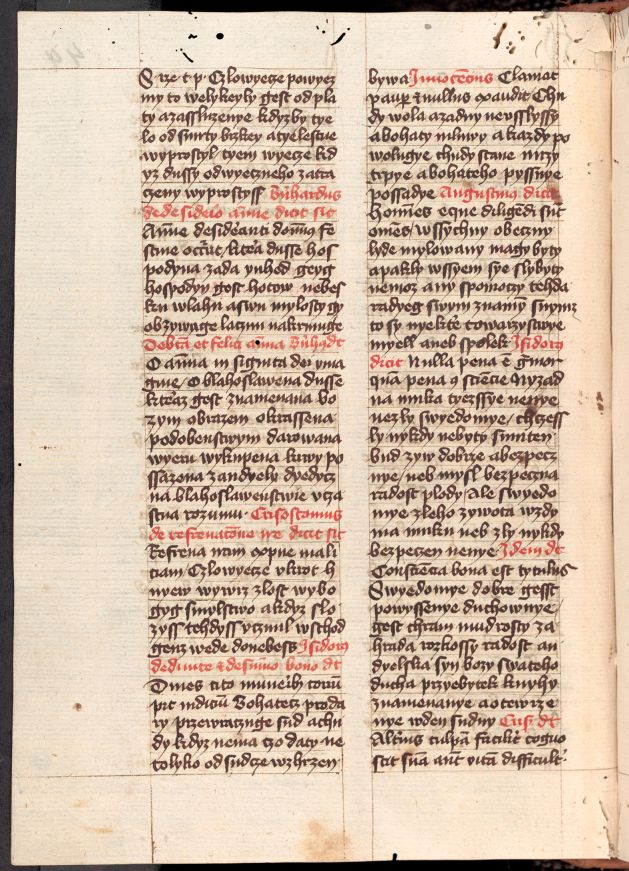 S. rze t p. Czlowyecze powyez
my to welykeyly gest od pla
ty azasluzenye kdyzby tye
lo od smrty brzkey atyelestne
wyprostyl tyem wyecze kd
yz dussy odwyeczneho zatra
czeny wyprostyss Bernhardus
de desiderio anime dicit sic
Anime desideranti dominus fe
stine occurrit ktera dusse hos
podyna zada ynhed geyg
hospodyn gest hotow nebes
kru wlahu aswu mylosty gy
obzywage laczni nakrmuge
O anima in signita dei yma
gine O blahoslawena dusse
kteraz gest znamenana bo
zym obrazem okrassena
podobenstwym darowana
wyeru wykupena krwy po
ssazena zandyely dyedycz
na blahoslawenstwie vcza
stna rozumu. Crisostomus
de refrenatione ire dicit sic
Refrena
ciam Czlowyecze vkrot h
nyew wywrz zlost wybo
gyg smylstwo akdyz slo
zyss tehdyss vczinil wschod
genz wede donebess Isidorus
de summo bono dt
Dives cito muneribus
Bohatecz proda
ry przewraczuge sud achu
dy kdyz nema czo daty ne
tolyko od sudcze wzhrzen
bywa Innocencius Clamat
pauper et nullus exaudit Chu
dy wola azadny neusslyssy
abohaty mluwy akazdy po
wolugye chudy stane mczy
trpye abohateho pyssnye
possadye Augustinus dicit
Homines eque diligendi sunt
omnes wssychny obeczny
lyde mylowany magy byty
apakly wssyem sye slybyty
nemoz any spomoczy tehda
radyeg swym znamym snymz
to sy nyekte towarzystwye
myell aneb spolek Isidorus
dicit Nulla pena est gravior
quam pena consciencie Nyzad
na muka tyezssye nenye
nezly swyedomye chczess
ly nykdy nebyty smuten
bud zyw dobrze abezpecz
nye neb mysl bezpeczna
radost plody Ale swyedo
mye zleho zywota wzdy
ma muku neb zly nykdy
bezpeczen nenye Idem dt
Consciencia bona est tytulus
Swyedomye dobre gesst
powyssenye duchownye
gest chram mudrosty za
hrada rozkossy radost an
dyelska syn bozy swateho
ducha przyebytek knyhy
znamenanye aotewrze
nye wden sudny Cris dt
Alterius culpam faciliter cogno
scit suam autem vitam difficulter